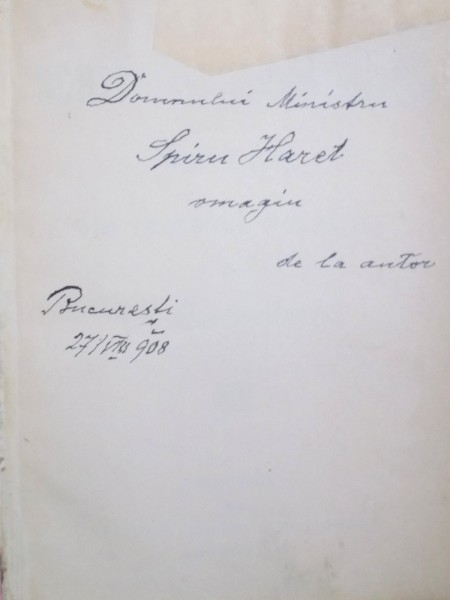 Domnului Ministru
Spiru Haret
omagiu
de la autor
Bucuresti
27/VIII 908